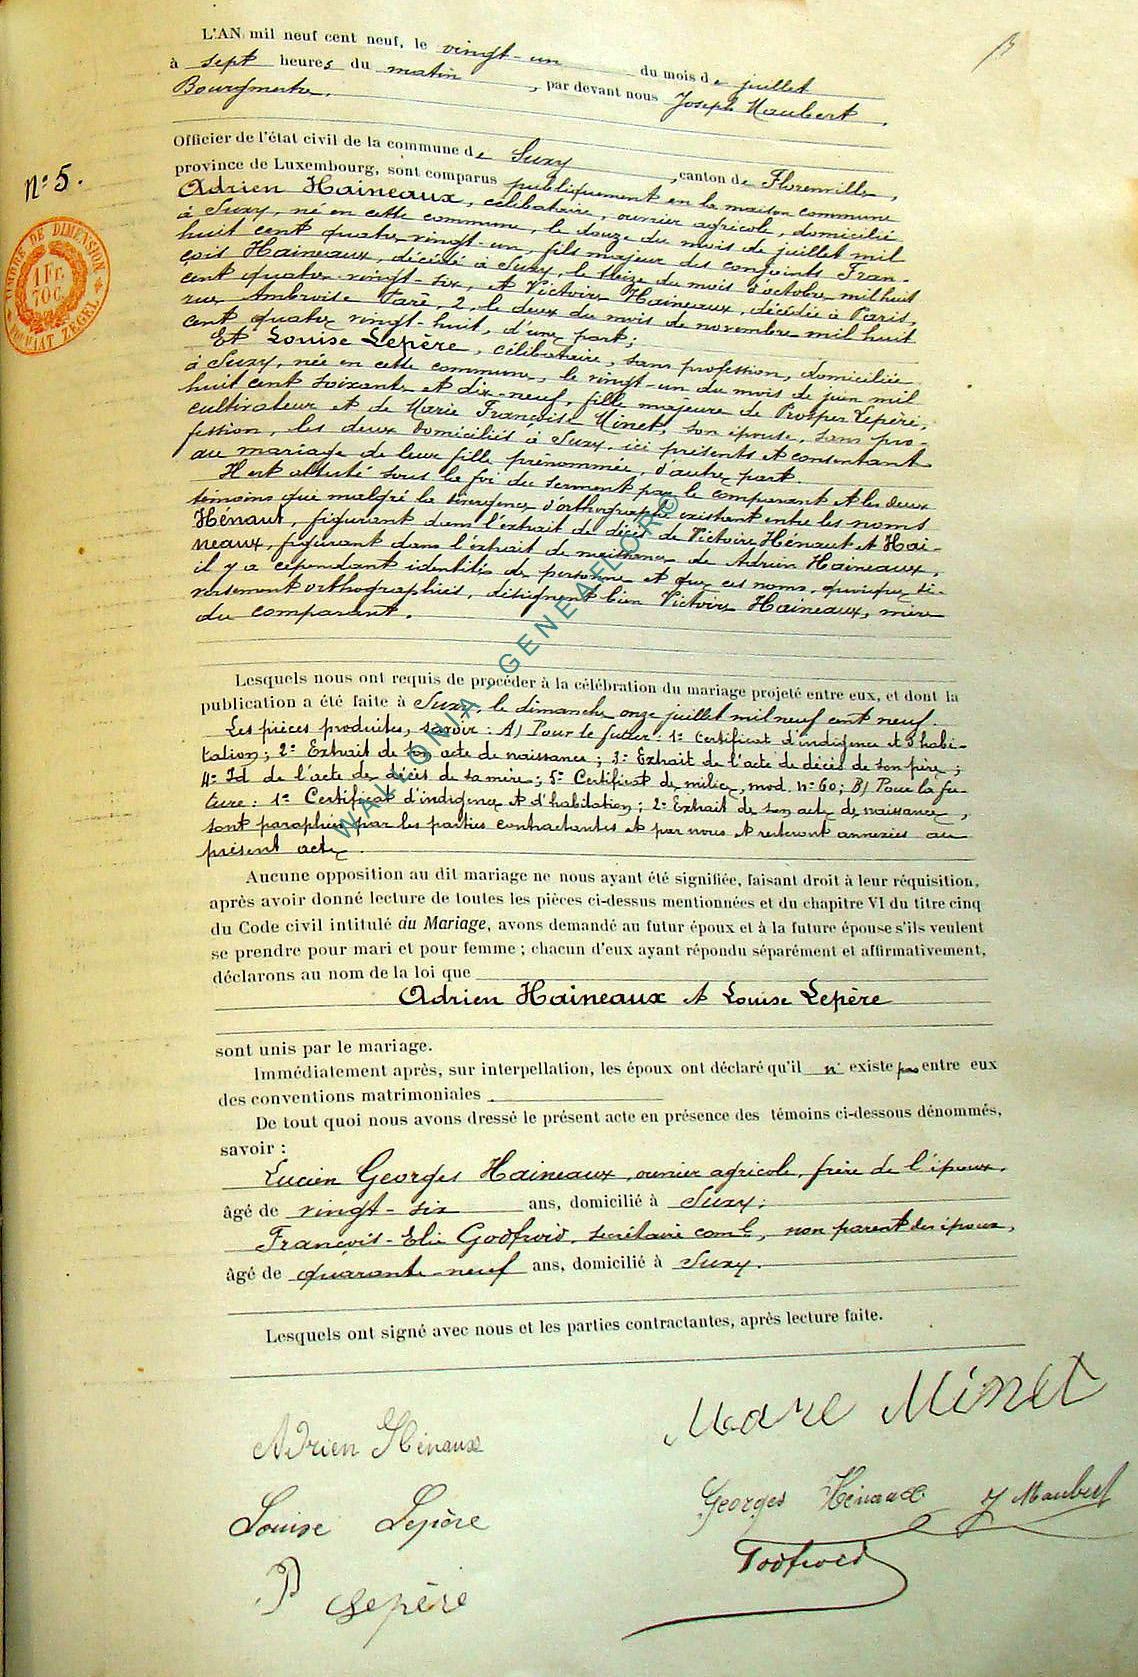 L'AN mil neuf cent neuf, le vingt-un du mois de juillet
à sept heures du matin, par devant nous Joseph Maubert
Bourgmestre.
Officier de l'état civil de la commune de Suxy, canton de Florenville,
province de Luxembourg, sont comparus publiquement en la maison commune
Adrien Haineaux, célibataire, ouvrier agricole, domicilié
à Suxy, né en cette commune, le douze du mois de juillet mil
huit cent quatre-vingt-un, fils majeur des conjoints Fran-
çois Haineaux, décédé à Suxy, le seize du mois d'octobre mil huit
cent quatre-vingt-six, et Victoire Haineaux, décédée à Paris,
rue Ambroise Paré, 2, le deux du mois de novembre mil huit
cent quatre vingt-huit, d'une part;
Et Louise Lepère, célibataire, sans profession, domiciliée
à Suxy, née en cette commune, le vingt-un du mois de juin mil
huit cent soixante et dix-neuf, fille majeure de Prosper Lepère,
cultivateur et de Marie Françoise Minet, son épouse, sans pro-
fession, les deux domiciliés à Suxy, ici présents et consentant
au mariage de leur fille prénommée, d'autre part.
Il est attesté sous la foi du serment par le comparant et les deux
témoins que malgré la divergence d'orthographe existant entre les noms
Hénaut, figurant dans l'extrait de décès de Victoire Hénaut et Hai-
neaux, figurant dans l'extrait de naissance de Adrien Haineaux,
il y a cependant identité de personne et que ces noms, quoique di-
versement orthographiés, désignent bien Victoire Haineaux, mère
du comparant.
Lesquels nous ont requis de procéder à la célébration du mariage projeté entre eux, et dont la
publication a été faite à Suxy, le dimanche onze juillet mil neuf cent neuf.
Les pièces produites, savoir : A) Pour le futur : 1° Certificat d'indigence et d'habi-
tation; 2° Extrait de son acte de naissance; 3° Extrait de l'acte de décès de son père;
4° Id de l'acte de décès de sa mère; 5° Certificat de milice, mod. n° 60; B) Pour la fu-
ture : 1° Certificat d'indigence et d'habitation; 2° Extrait de son acte de naissance,
sont paraphées par les parties contractantes et par nous et resteront annexées au
présent acte.
Aucune opposition au dit mariage ne nous ayant été signifiée, faisant droit à leur réquisition,
après avoir donné lecture de toutes les pièces ci-dessus mentionnées et du chapitre VI du titre cinq
du Code civil intitulé du Mariage, avons demandé au futur époux et à la future épouse s'ils veulent
se prendre pour mari et pour femme ; chacun d'eux ayant répondu séparément et affirmativement,
déclarons au nom de la loi que
Adrien Haineaux et Louise Lepère
sont unis par le mariage.
Immédiatement après, sur interpellation, les époux ont déclaré qu'il n' existe pas entre eux
des conventions matrimoniales.
De tout quoi nous avons dressé le présent acte en présence des témoins ci-dessous dénommés,
savoir :
Lucien Georges Haineaux, ouvrier agricole, frère de l'époux,
âgé de vingt-six ans, domicilié à Suxy;
François-Elie Godfroid, secrétaire coml, non parent des époux,
âgé de quarante-neuf ans, domicilié à Suxy.
Lesquels ont signé avec nous et les parties contractantes, après lecture faite.
Mare Minet
Adrien Hénaux
Georges Hénaux J Maubert
Louise Lepère
Godfroid
P Lepère
n° 5.
TIMBRE DE DIMENSION
1 Fr.
70 C.
FORMAAT ZEGEL
WALLONIA GENEAFLOR©